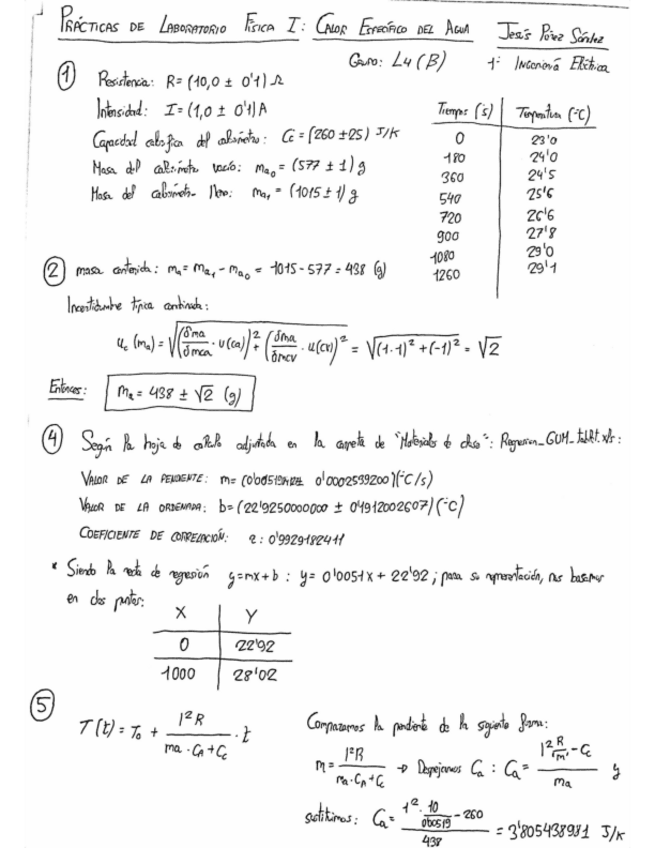 PRÁCTICAS DE LABORATORIO FÍSICA I: CALOR ESPECÍFICO DEL AGUA
Jesús Pérez Sández
Grupo: L4 (B)
1º Ingeniería Eléctrica
① Resistencia: R = (10,0 ± 0'1) Ω
Intensidad: I = (1,0 ± 0'1) A
Capacidad calorífica del calorímetro: Cc = (260 ±25) J/K
Masa del calorímetro vacío: ma₀ = (577 ± 1) g
Masa del calorímetro lleno: ma₁ = (1015 ± 1) g
Tiempos (s) | Temperatura (ºC)
0 | 23'0
180 | 24'0
360 | 24'5
540 | 25'6
720 | 26'6
900 | 27'8
1080 | 29'0
1260 | 29'1
② masa contenida: ma = ma₁ - ma₀ = 1015 - 577 = 438 (g)
Incertidumbre típica combinada:
u꜀ (ma) = √((δma/δmca · u(ca))² + (δma/δmcv · u(cv))²) = √((1·1)² + (-1)²) = √2
Entonces: ma = 438 ± √2 (g)
④ Según la hoja de cálculo adjuntada en la carpeta de "Materiales de clase": Regresion_GUM_tablRt.xls:
VALOR DE LA PENDIENTE: m= ( 0'0002539200)(ºC/s)
VALOR DE LA ORDENADA: b= (22'9250000000 ± 0'1912002607) (ºC)
COEFICIENTE DE CORRELACIÓN: r: 0'9929182411
* Siendo la recta de regresión y=mx+b : y= 0'0051x + 22'92 ; para su representación, nos basamos
en dos puntos:
X | Y
0 | 22'92
1000 | 28'02
⑤ T(t) = T₀ + I²R/(ma · CA + Cc) · t
Comparamos la pendiente de la siguiente forma:
m = I²R/(ma·CA + Cc) → Despejamos Ca : Ca = (I² R/m - Cc)/ma y
sustituimos: Ca = (1² · 10/0'00519 - 260)/438 = 3'805438981 J/K